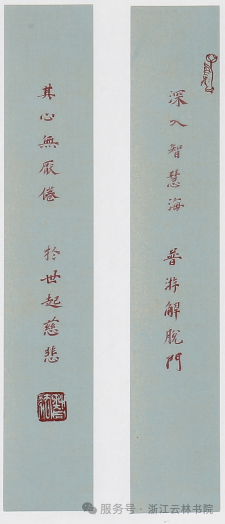 深入智慧海 普游解脫門
其心無厭倦 於世起慈悲
服务号·浙江云林书院